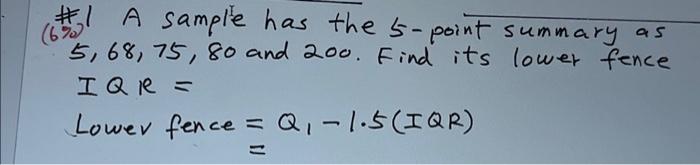 #1 A sample has the 5-point summary as
(6%) 5, 68, 75, 80 and 200. Find its lower fence
IQR =
Lower fence = Q₁ - 1.5(IQR)
=